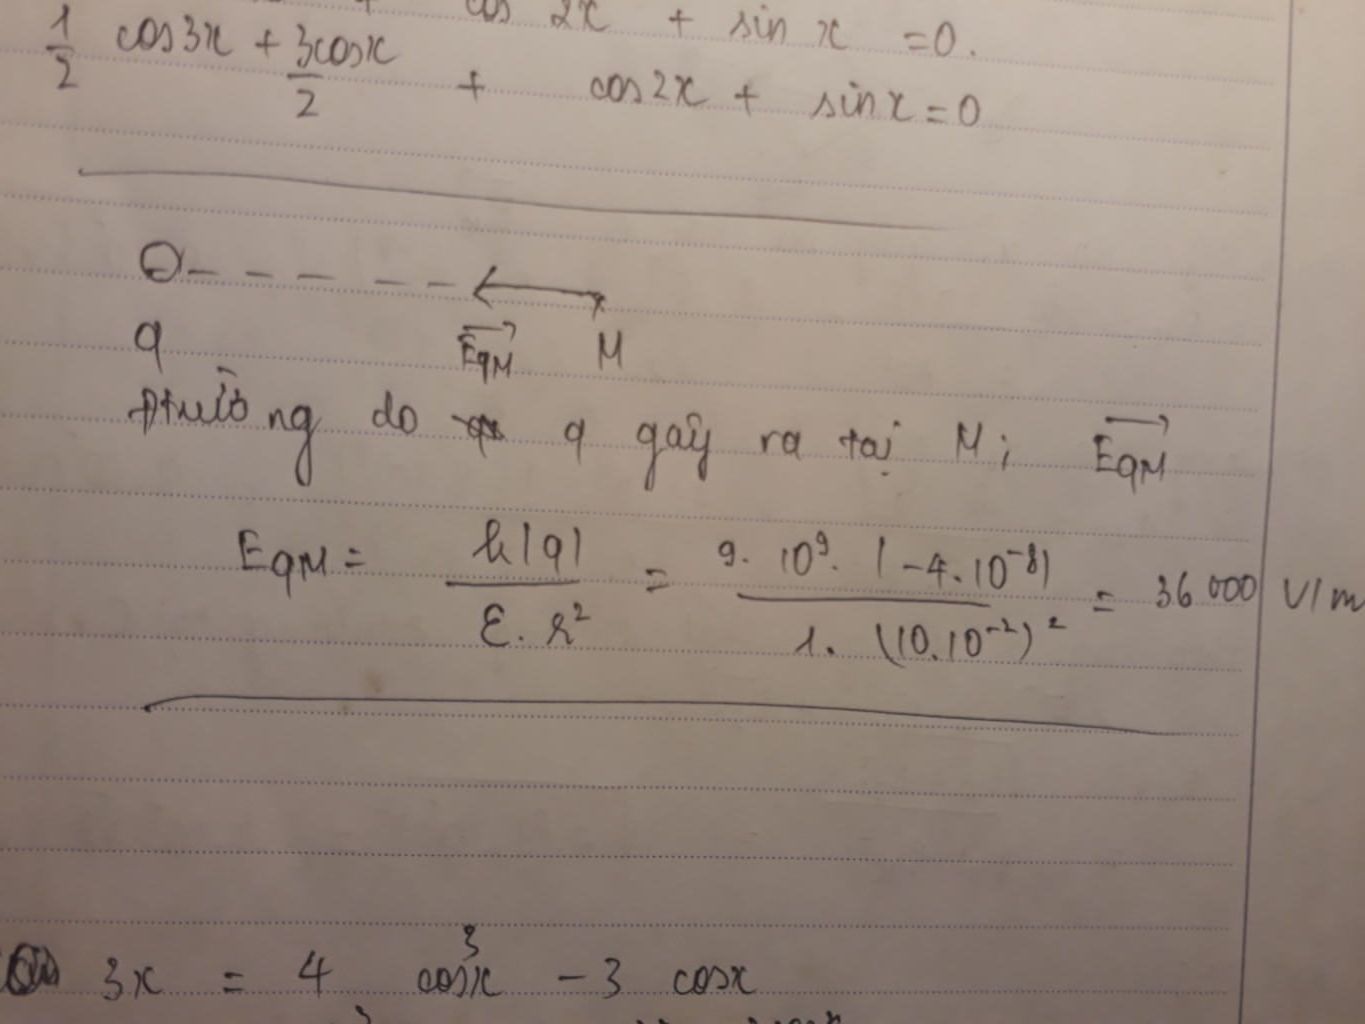 cos 2x + sin x = 0.
1/2 cos3x + 3cosx/2 + cos2x + sinx = 0
q EqM M
Đtrường do q gây ra tại M; EqM
EqM = k|q| / ε.r² = 9.10⁹.|-4.10⁻⁸| / 1.(10.10⁻²)² = 36000 V/m
3x = 4 cos³x - 3 cosx